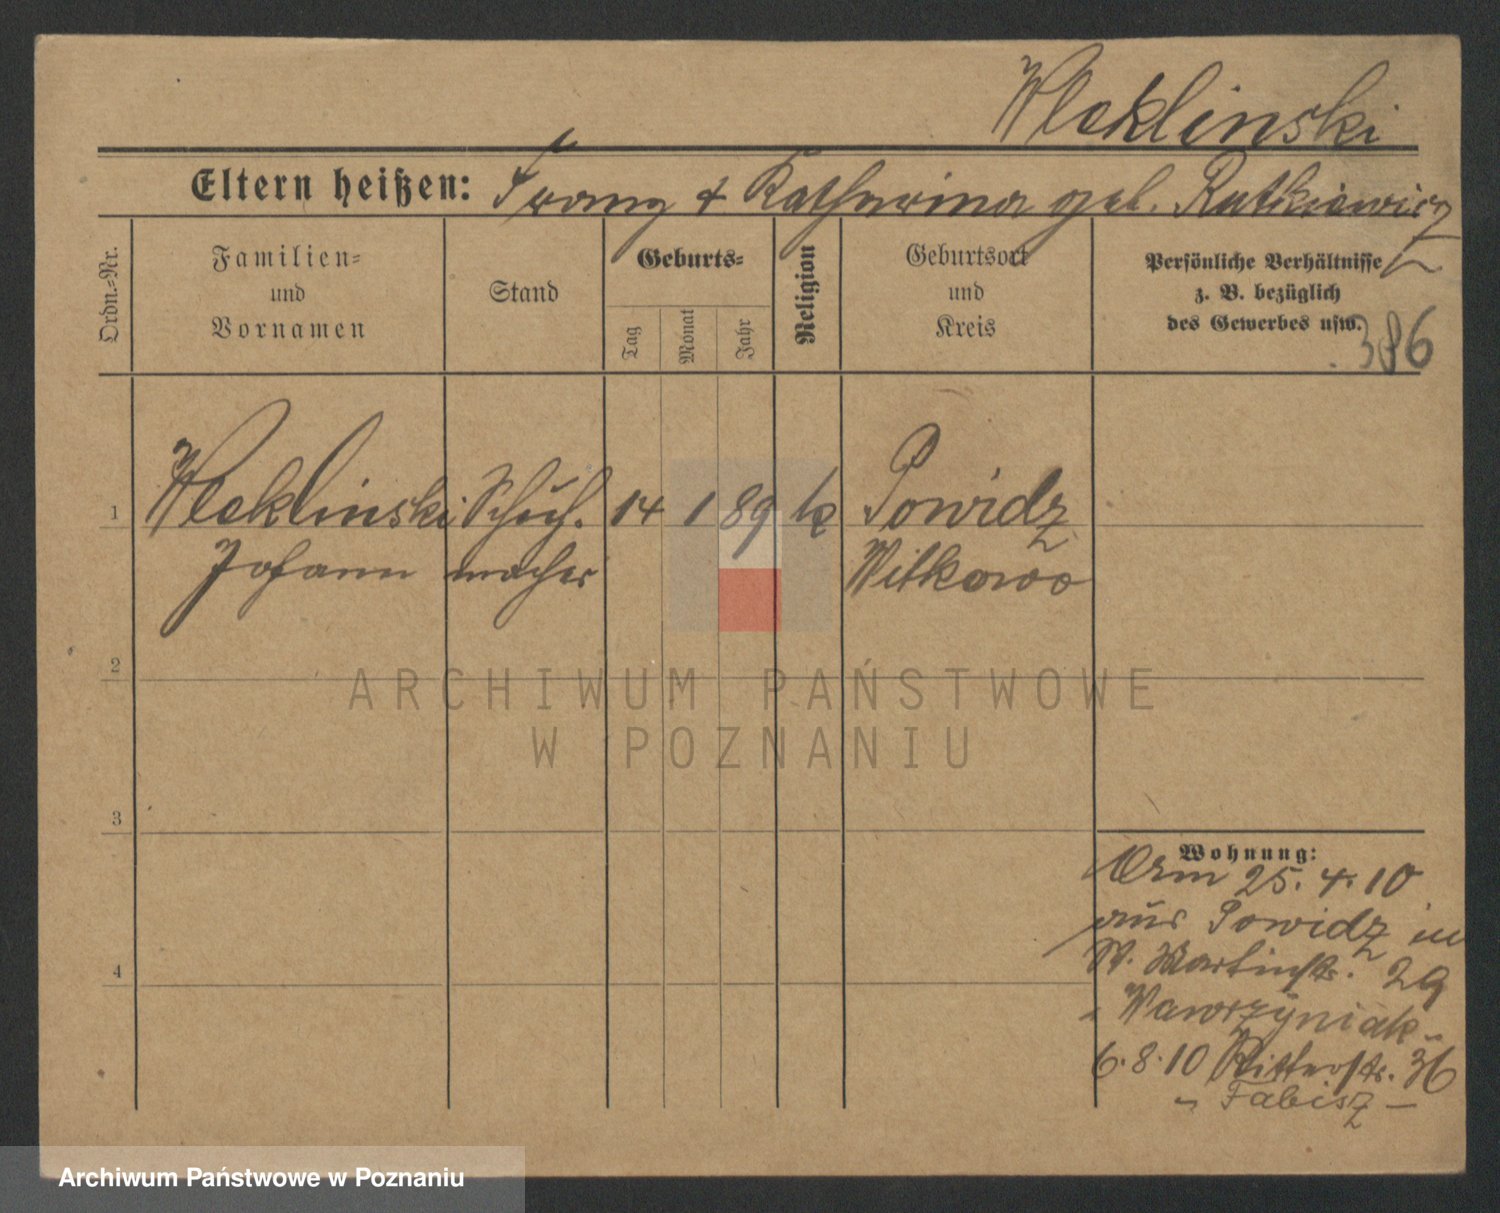 Wleklinski
Eltern heißen: Franz & Katharina geb. Rutkiewicz
Ordn.-Nr.
Familien-
und
Vornamen
Stand
Geburts-
Tag
Monat
Jahr
Religion
Geburtsort
und
Kreis
Persönliche Verhältnisse
z. B. bezüglich
des Gewerbes usw.
386
1 Wleklinski Schuh. 14 1 89 k Powidz
Johann macher Witkowo
2
3
4
ARCHIWUM PAŃSTWOWE
W POZNANIU
Wohnung:
25.4.10
aus Powidz in
St. Martinstr. 29
- Wawrzyniak -
6.8.10 Ritterstr. 36
- Fabisz -
Archiwum Państwowe w Poznaniu